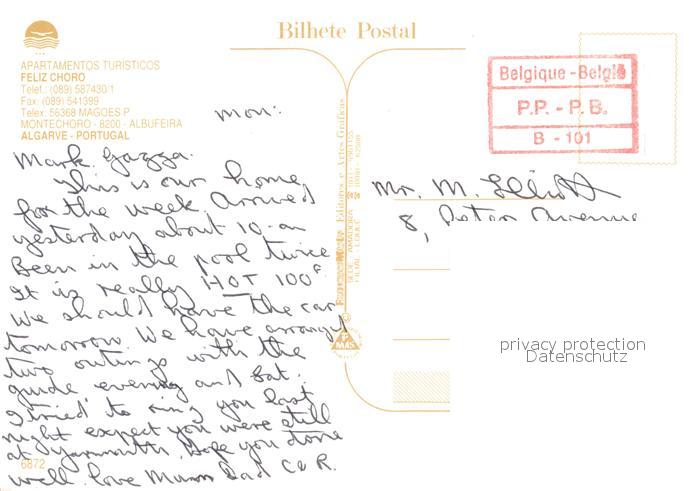 Bilhete Postal
APARTAMENTOS TURÍSTICOS
FELIZ CHORO
Telef.: (089) 587430/1
Fax: (089) 541399
Telex: 56368 MAGOES P
MONTECHORO - 8200 - ALBUFEIRA
ALGARVE - PORTUGAL
Belgique - België
P.P. - P.B.
B - 101
Mon:
Mark, Gazza.
This is our home
for the week Arrived
yesterday about 10-am
Been in the pool twice
It is really HOT 100°
We should have the car
tomorrow. We have arranged
two outings with the
guide evening and Sat.
I tried to ring you last
night expect you were still
at Yarmouth. Hope you done
well. love Mum Dad C & R.
6872
Mr. M. Elliott
8, Avenue
Editores e Artes Gráficas
privacy protection
Datenschutz